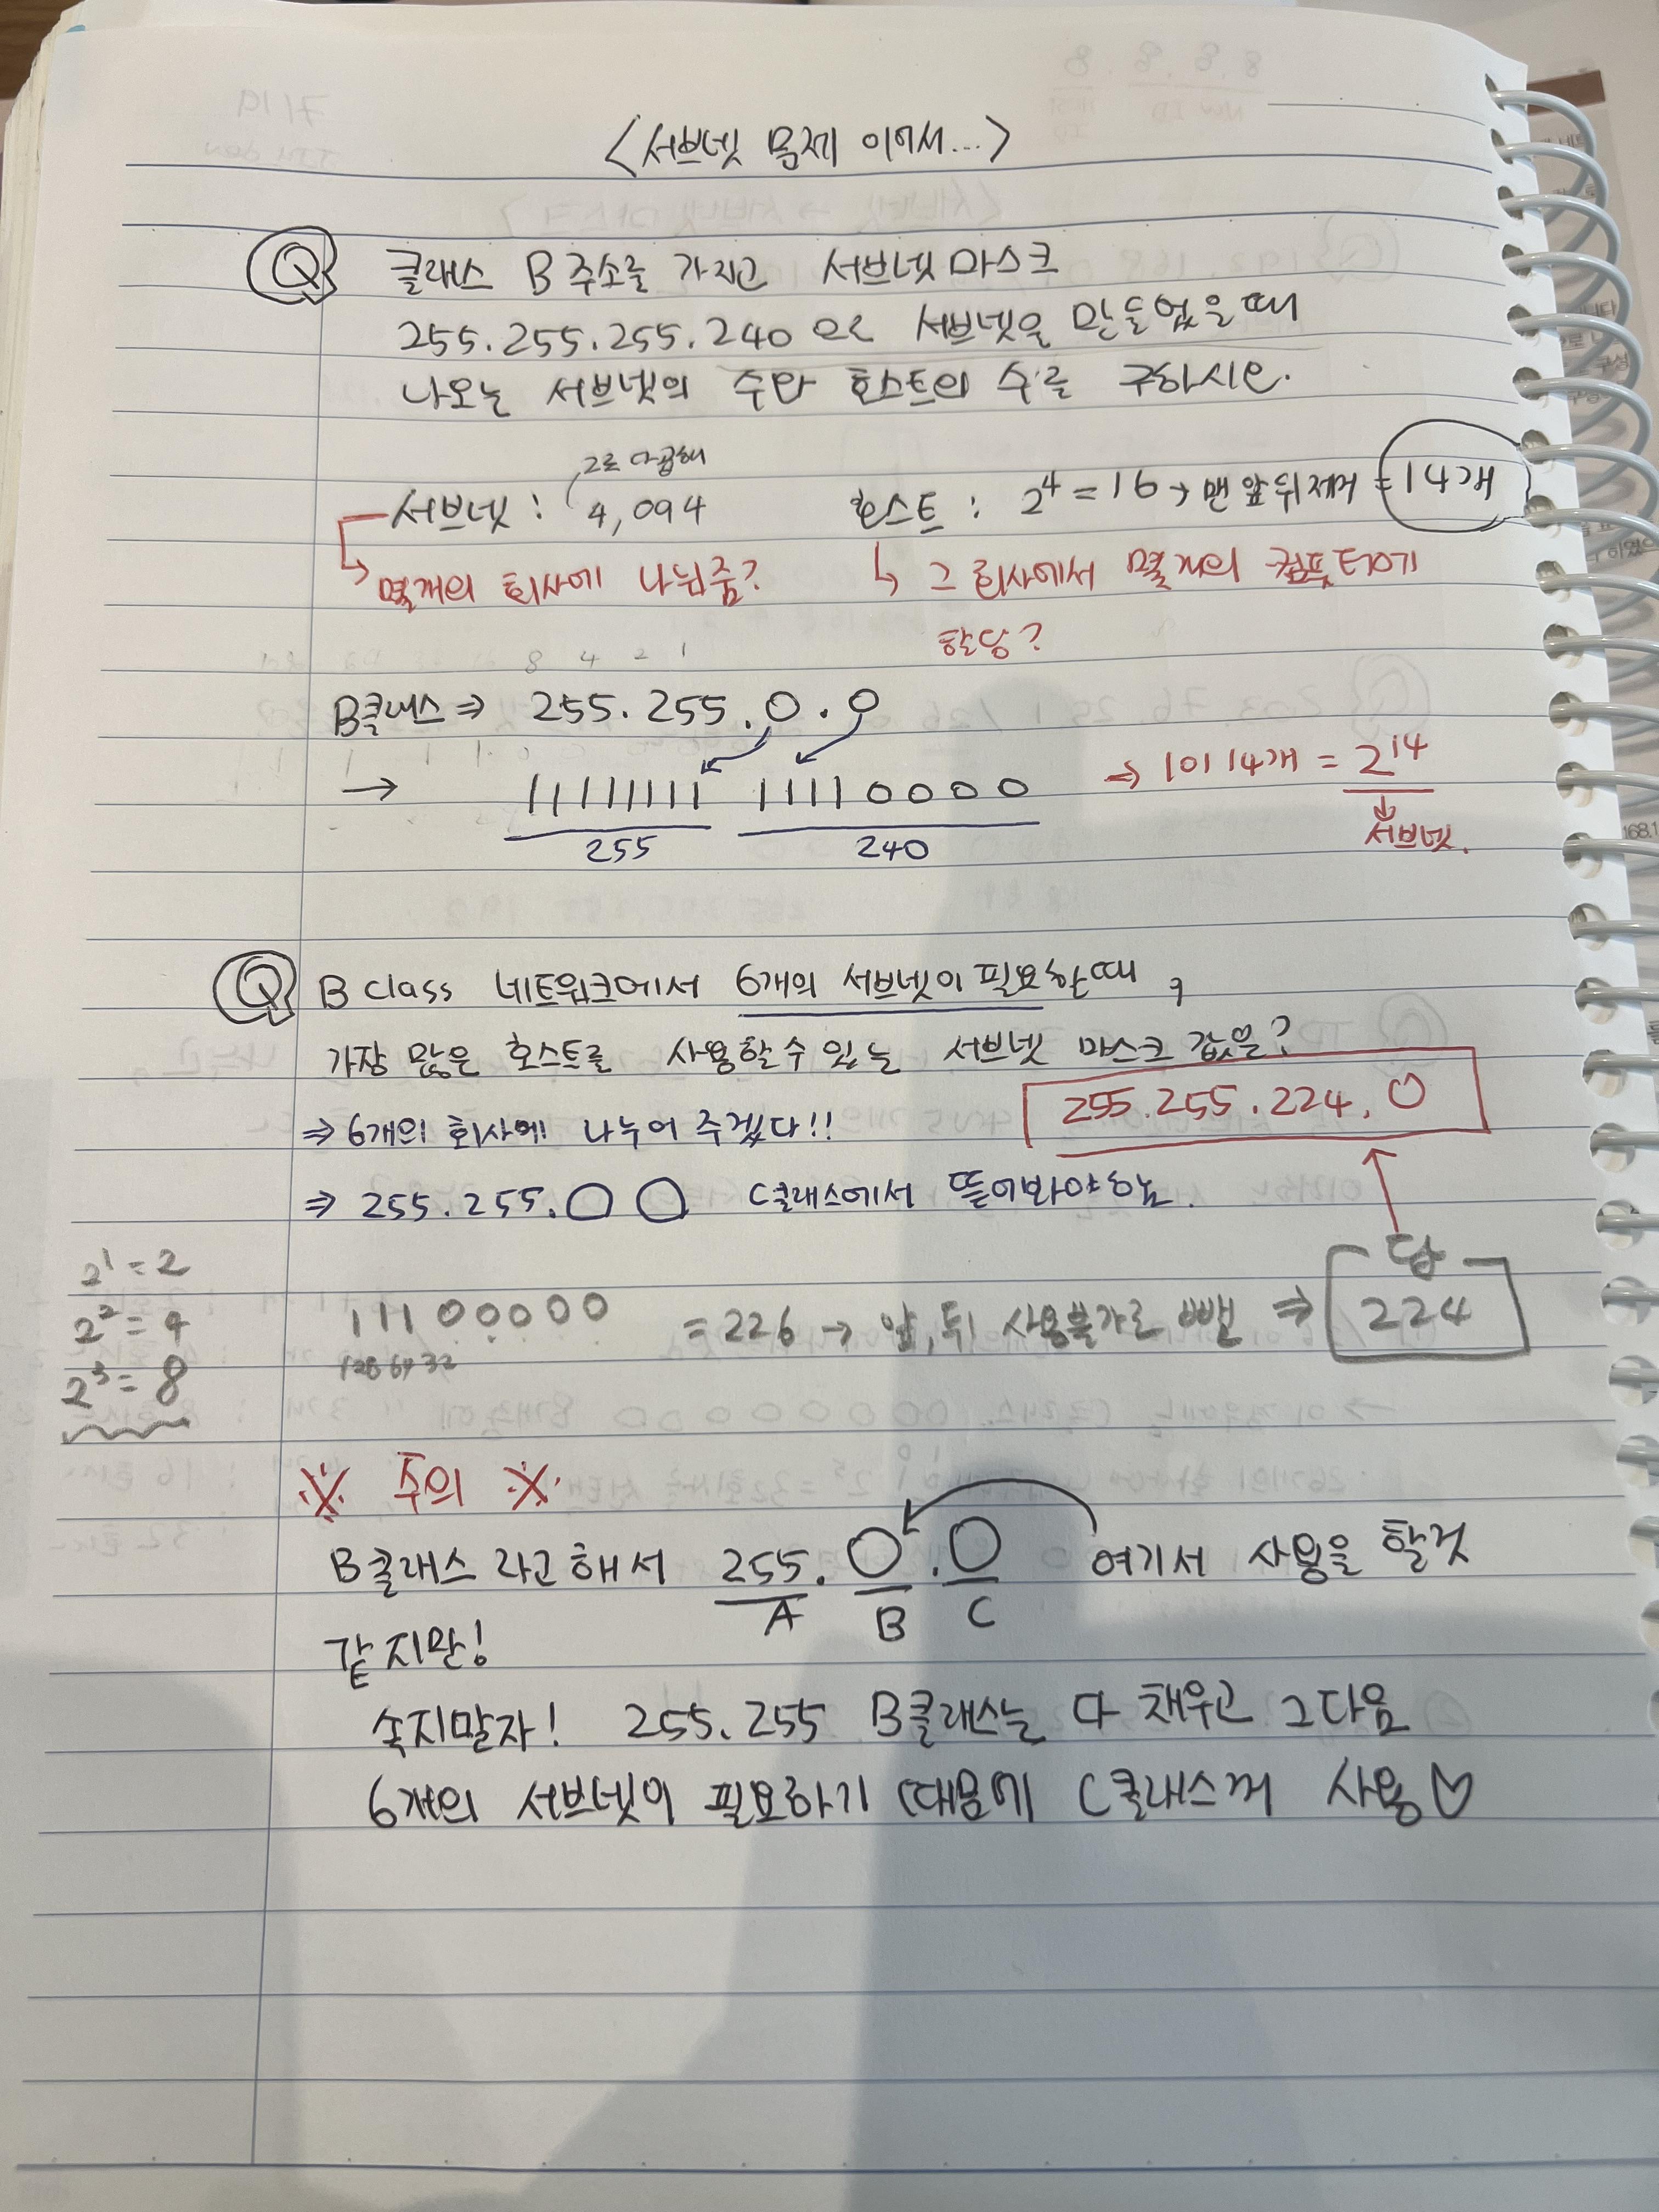 <서브넷 문제 이어서...>
Q 클래스 B 주소를 가지고 서브넷 마스크
255.255.255.240 으로 서브넷을 만들었을때
나오는 서브넷의 수와 호스트의 수를 구하시오.
2로 다곱해
서브넷 : 4,094 호스트 : 2⁴ = 16 → 맨 앞 뒤 제거 = 14개
↳ 몇개의 회사에 나눠줌? ↳ 그 회사에서 몇개의 컴퓨터에
할당?
8 4 2 1
B클래스 ⇒ 255.255.0.0
→ 11111111 11110000 → 1이 14개 = 2¹⁴
255 240 서브넷.
Q B class 네트워크에서 6개의 서브넷이 필요할때,
가장 많은 호스트를 사용할 수 있는 서브넷 마스크 값은?
255.255.224.0
⇒ 6개의 회사에 나누어 주겠다!!
⇒ 255.255.○ ○ C클래스에서 뜯어봐야 하는
2¹ = 2
2² = 4
2³ = 8
답
11100000 = 226 → 앞, 뒤 사용불가로 뺌 ⇒ 224
128 64 32
※ 주의 ※
B클래스 라고 해서 255.○.○ 여기서 사용을 할것
A B C
같지만!
속지말자! 255.255 B클래스는 다 채우고 그다음
6개의 서브넷이 필요하기 때문에 C클래스꺼 사용♡